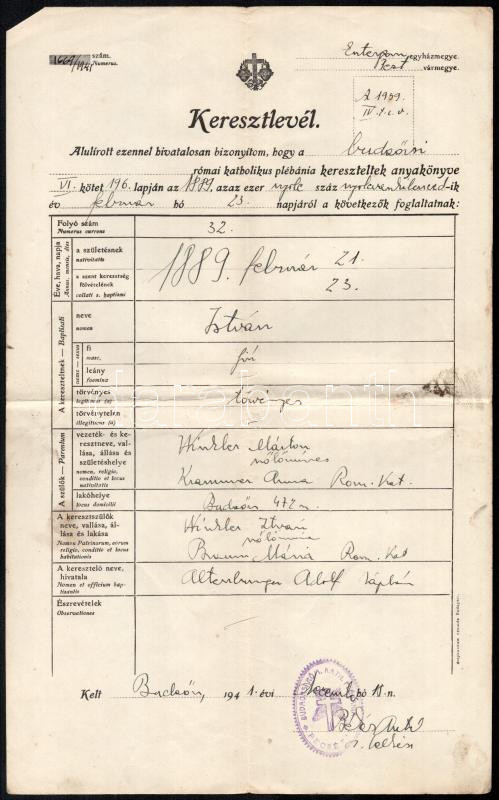 1664/1941 szám.
Numerus.
egyházmegye.
Pest vármegye.
A 1959.
IV. t. c. v.
Keresztlevél.
Alulírott ezennel hivatalosan bizonyítom, hogy a budaörsi
római katholikus plébánia kereszteltek anyakönyve
VI. kötet 196. lapján az 1889, azaz ezer nyolc száz nyolcvankilenced-ik
év február hó 23. napjáról a következők foglaltatnak:
Folyó szám
Numerus currens
32.
Éve, hava, napja
Annus, mensis, dies
a születésnek
nativitatis
1889. február 21.
a szent keresztség
fölvételének
collati s. baptismi
23.
A kereszteltnek — Baptisati
neve
nomen
István
neme — sexus
fi
masc.
fiú
leány
foemina
törvényes
legitimus (a)
törvényes
törvénytelen
illegitimus (a)
A szülők — Parentum
vezeték- és ke-
resztneve, val-
lása, állása és
születéshelye
nomen, religio,
conditio et locus
nativitatis
Winkler Márton
szőlőműves
Krammer Anna Rom. Kat.
lakóhelye
locus domicilii
Budaörs 472 n.
A keresztszülők
neve, vallása, ál-
lása és lakása
Nomen Patrinorum, eorum
religio, conditio et locus
habitationis
Winkler István
Braun Mária Rom. Kat
A keresztelő neve,
hivatala
Nomen et officium bap-
tisantis
Altenburger Adolf káplán
Észrevételek
Observationes
Kelt Budaörs, 1941. évi hó 18.-n.